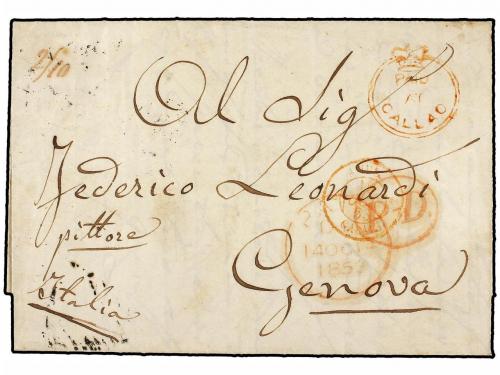 2/10
Al Sig
PAID
AT
CALLAO
Federico Leonardi
pittore
P.D.
14 OC
185
Italia
Genova